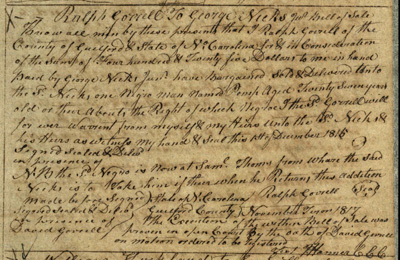 Ralph Gorrell To George Nicks Junr Bill of Sale
Know all men by these presents that I Ralph Gorrell of the
County of Guilford & State of No Carolina for & in Consideration
of the Sum of Four hundred & Twenty five Dollars to me in hand
paid by George Nicks Junr have Bargained Sold & Delivered Unto
the Sd Nicks one Negro man Named Aged Twenty Seven years
old or there Abouts the Right of which Negroe I the Sd Gorrell will
for ever Warrent from myself & my Heirs Unto the Sd Nicks &
his Heirs as witness my hand & Seal this 1st of December 1816
Signed Sealed & Delivd
in presence of
NB the Sd Negro is Now at Saml Thoms from whare the Said
Nicks is to Take him if then when he Returns this addition
made before Signed Ralph Gorrell Seal
Signed Sealed & Deld State of No Carolina
in presence of Guilford County November Term 1817
David Gorrell The Execution of the within Bill of Sale was
proven in open Court By the oath of David Gorrell
on motion ordered to be registered
Test Hanner C.C.C.